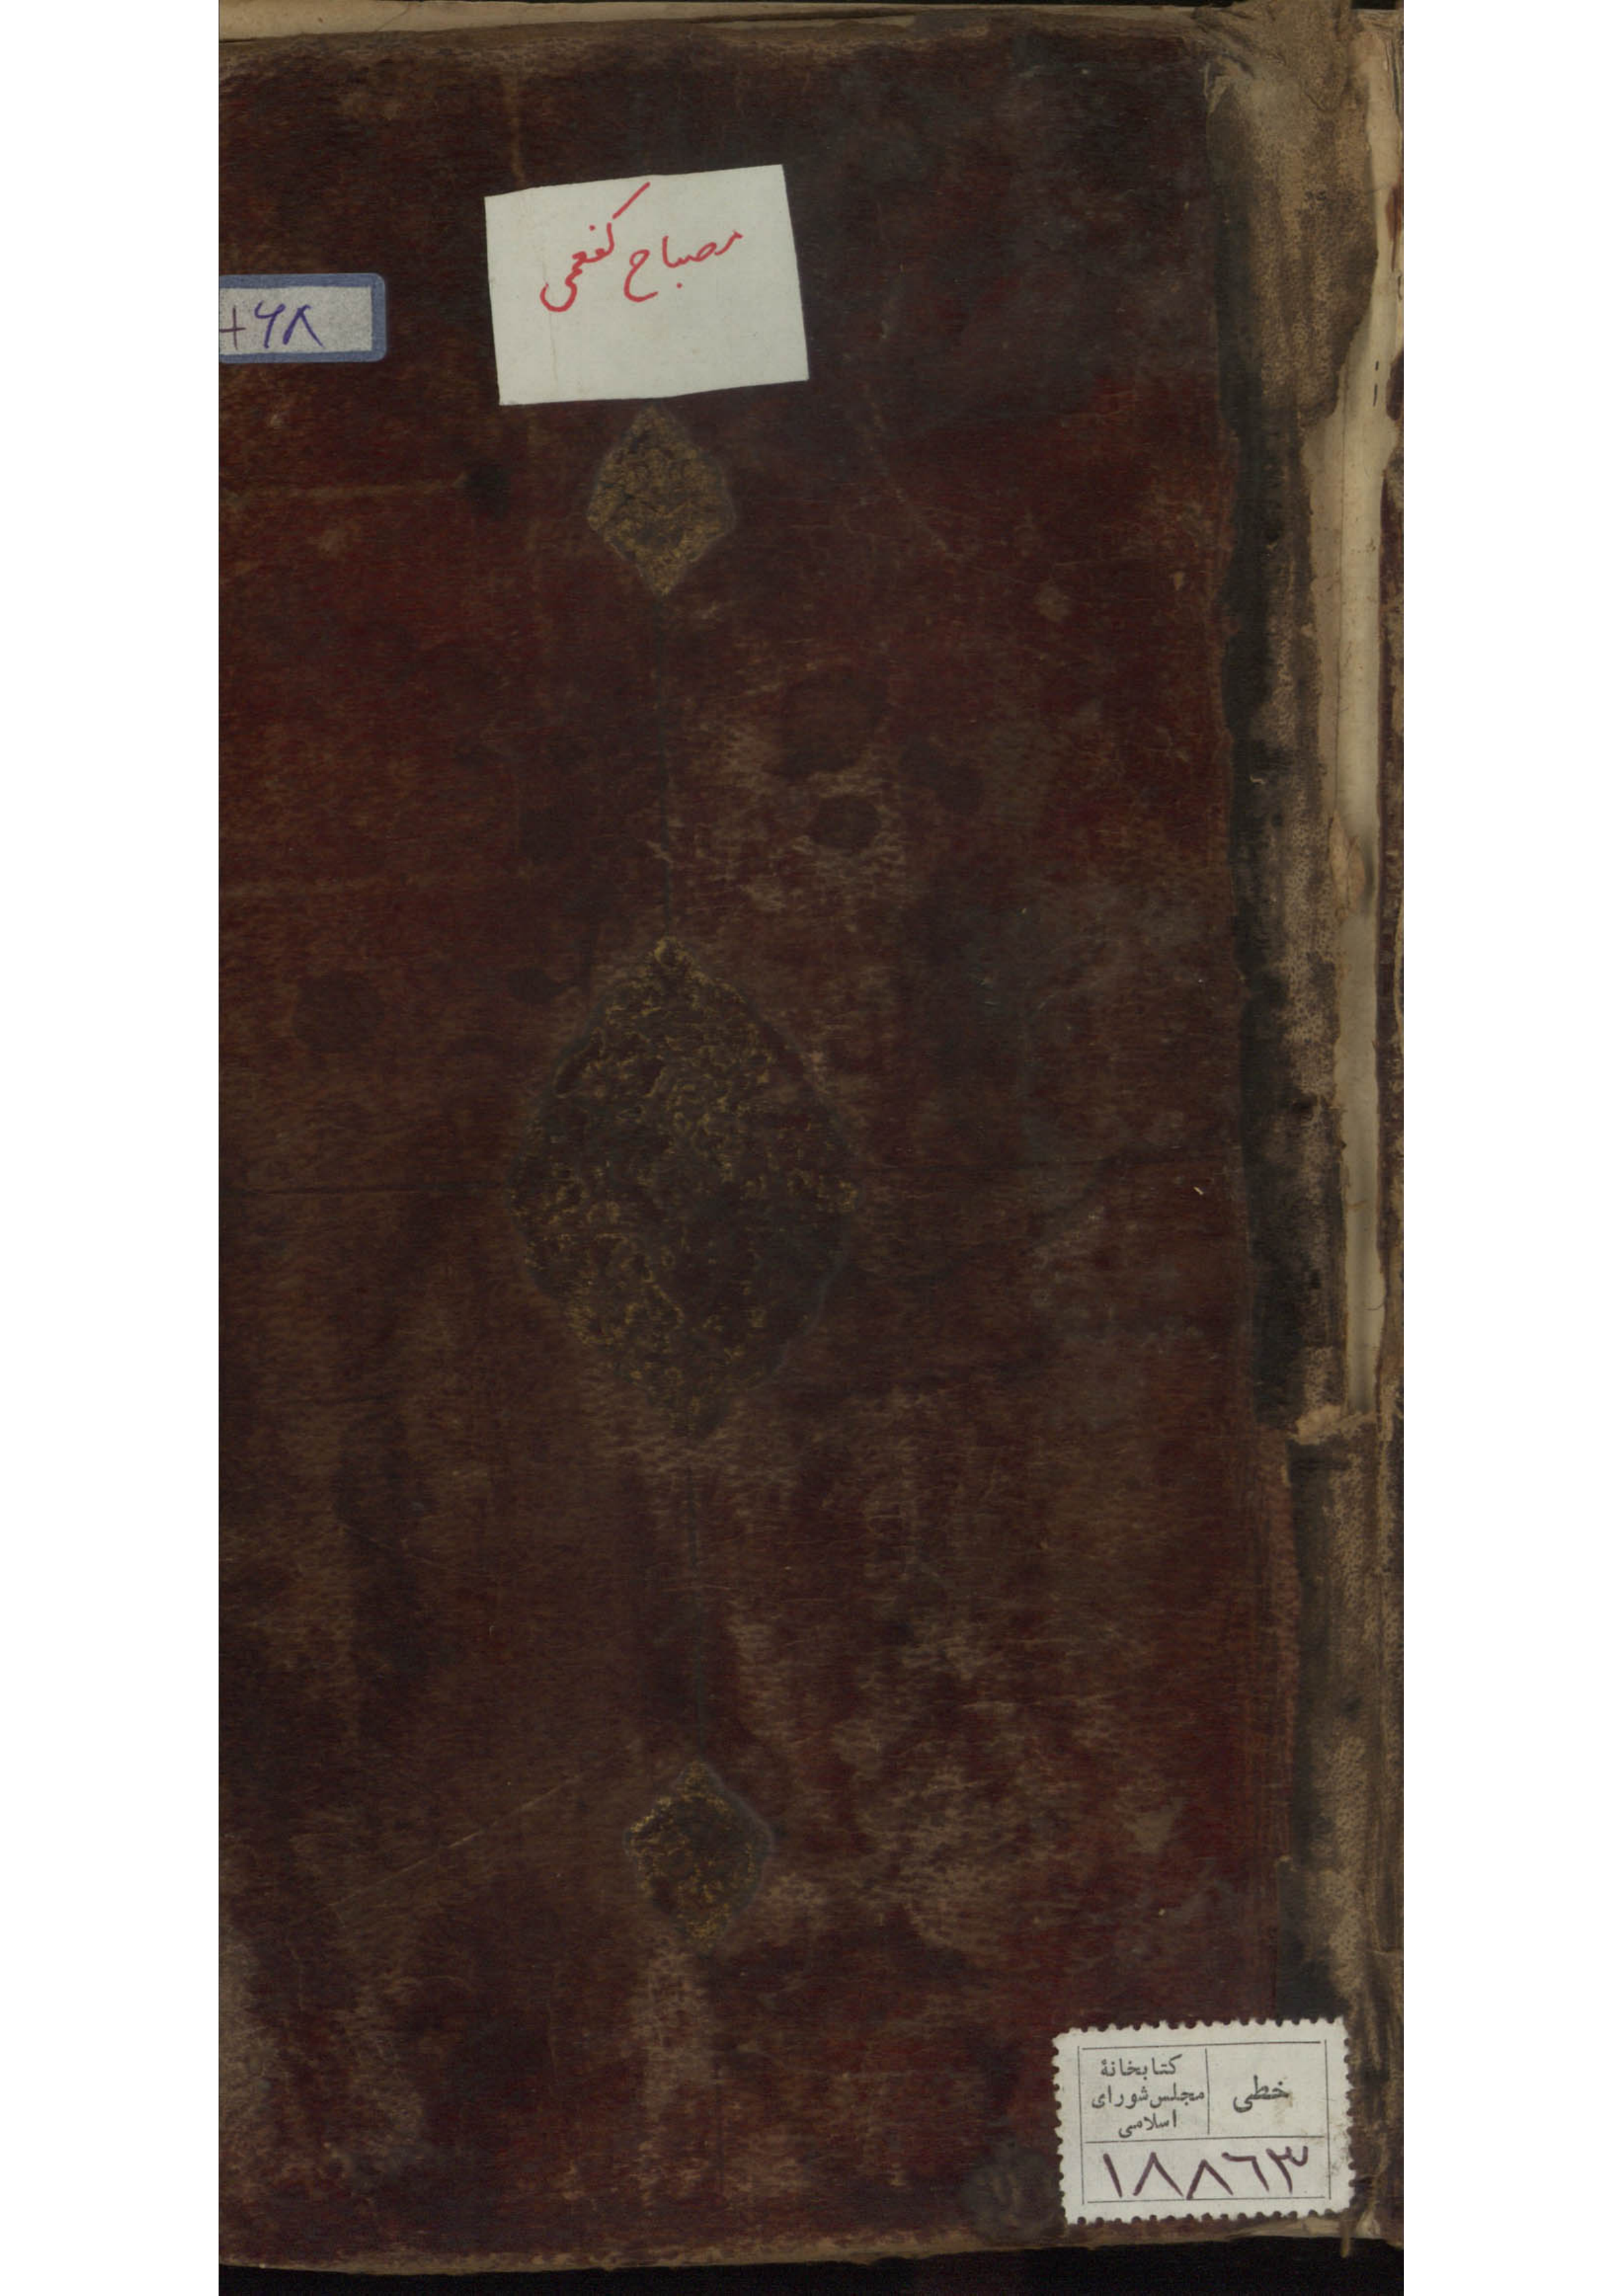 مصباح کفعمی
+۶۸
خطی
کتابخانهٔ
مجلس شورای
اسلامی
۱۸۸۶۳